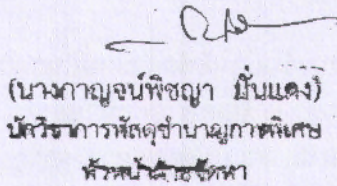 (นางกาญจน์พิชญา ปั่นแดง)
นักวิชาการพัสดุชำนาญการพิเศษ
หัวหน้าฝ่ายจัดหา